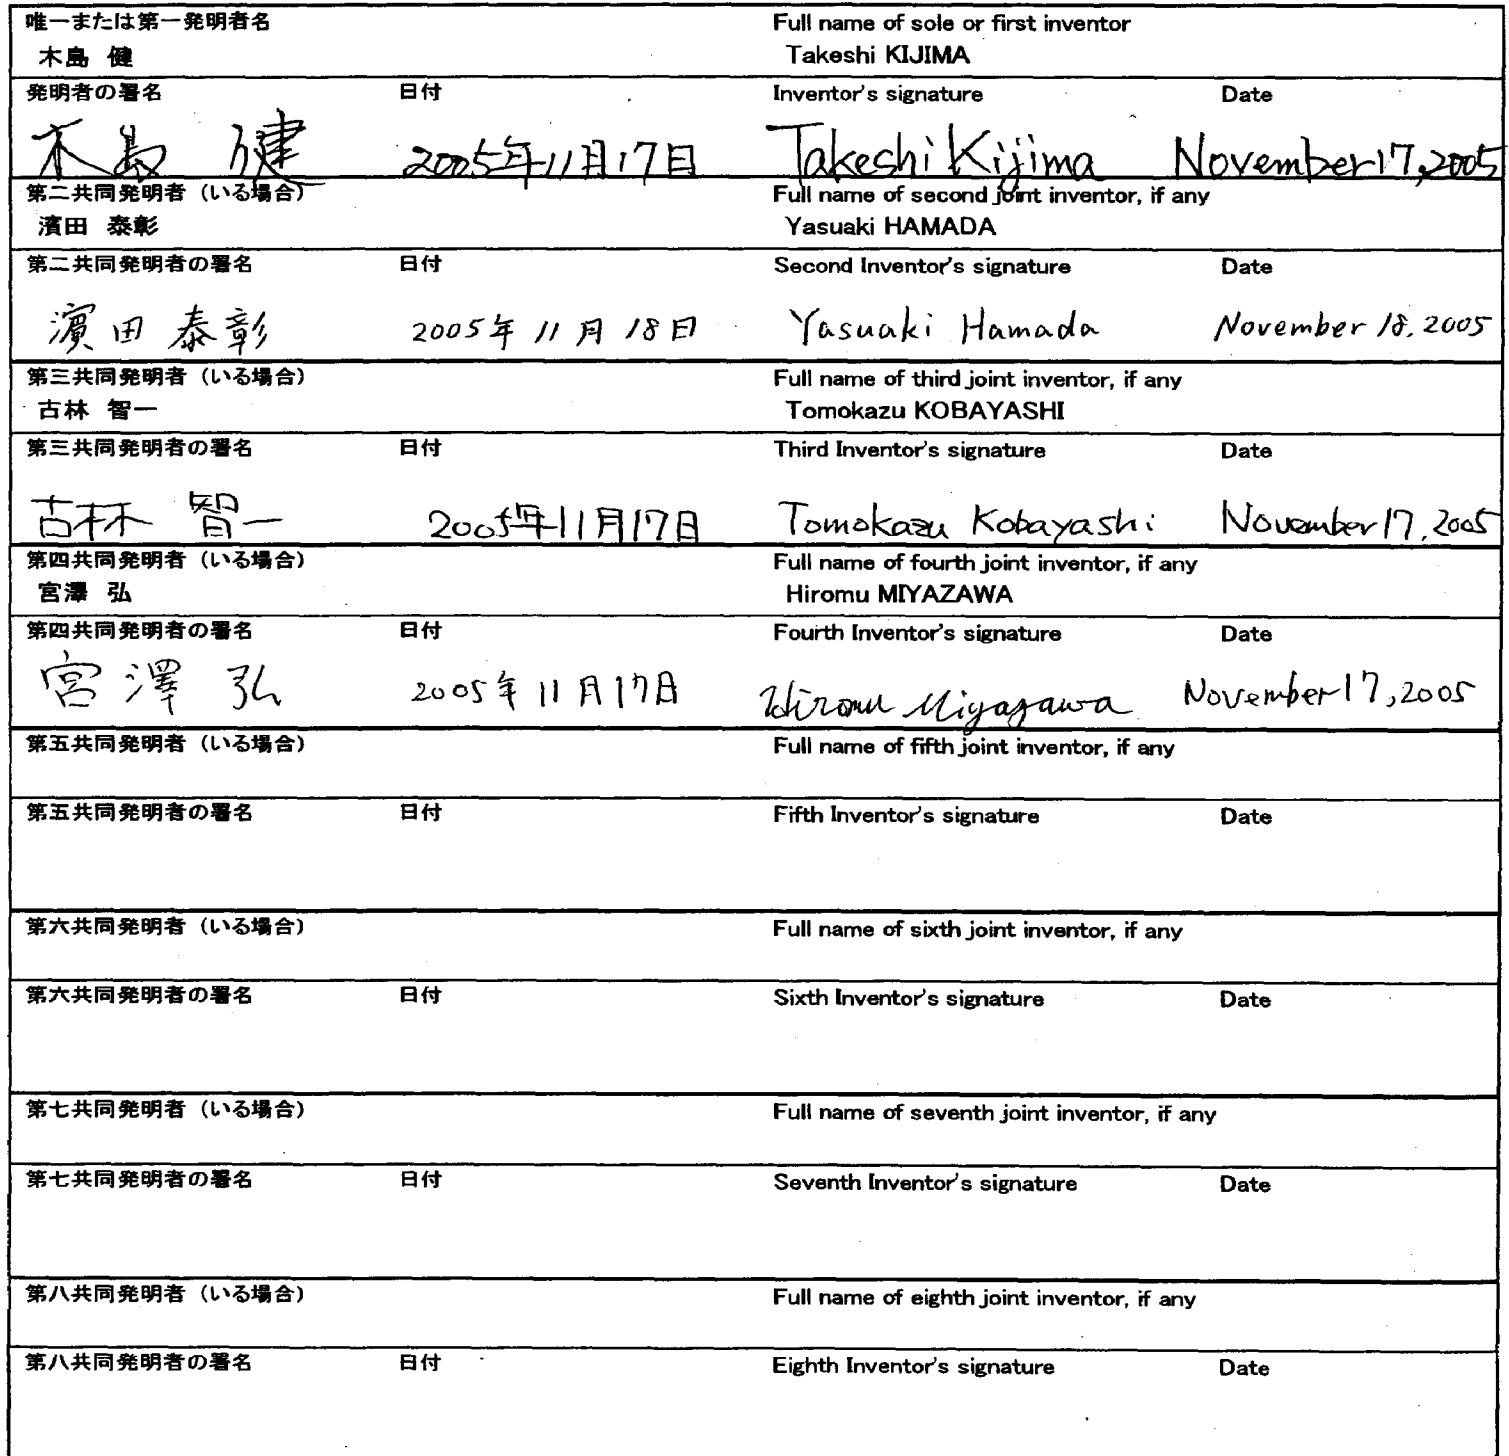 唯一または第一発明者名 Full name of sole or first inventor
木島 健 Takeshi KIJIMA
発明者の署名 日付 Inventor's signature Date
木島 健 2005年11月17日 Takeshi Kijima November 17, 2005
第二共同発明者（いる場合） Full name of second joint inventor, if any
濱田 泰彰 Yasuaki HAMADA
第二共同発明者の署名 日付 Second Inventor's signature Date
濱田 泰彰 2005年11月18日 Yasuaki Hamada November 18, 2005
第三共同発明者（いる場合） Full name of third joint inventor, if any
古林 智一 Tomokazu KOBAYASHI
第三共同発明者の署名 日付 Third Inventor's signature Date
古林 智一 2005年11月17日 Tomokazu Kobayashi November 17, 2005
第四共同発明者（いる場合） Full name of fourth joint inventor, if any
宮澤 弘 Hiromu MIYAZAWA
第四共同発明者の署名 日付 Fourth Inventor's signature Date
宮澤 弘 2005年11月17日 Hiromu Miyazawa November 17, 2005
第五共同発明者（いる場合） Full name of fifth joint inventor, if any
第五共同発明者の署名 日付 Fifth Inventor's signature Date
第六共同発明者（いる場合） Full name of sixth joint inventor, if any
第六共同発明者の署名 日付 Sixth Inventor's signature Date
第七共同発明者（いる場合） Full name of seventh joint inventor, if any
第七共同発明者の署名 日付 Seventh Inventor's signature Date
第八共同発明者（いる場合） Full name of eighth joint inventor, if any
第八共同発明者の署名 日付 Eighth Inventor's signature Date